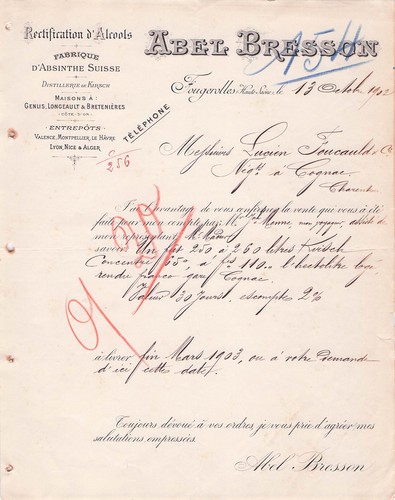 Rectification d'Alcools
FABRIQUE
D'ABSINTHE SUISSE
DISTILLERIE DE KIRSCH
MAISONS À
GENLIS, LONGEAULT & BRETENIÈRES
(CÔTE-D'OR)
ENTREPÔTS
VALENCE, MONTPELLIER, LE HÂVRE
LYON, NICE & ALGER
TÉLÉPHONE
256
ABEL BRESSON
Fougerolles (Haute-Saône), le 13 Octob 1902
Messieurs Lucien Foucauld & Cie
Négts à Cognac
Charente
J'ai l'avantage de vous confirmer la vente qui vous a été
faite pour mon compte par Mr mon voyageur, assisté de
mon représentant Mr
savoir: Un fût 250 à 260 litres Kirsch
Concentré 55° à frs 110.00 l'hectolitre logé
rendu franco gare Cognac
Valeur 30 Jours. escompte 2%
à livrer fin Mars 1903, ou à votre Demande
d'ici cette date.
Toujours dévoué à vos ordres, je vous prie d'agréer mes
salutations empressées.
Abel Bresson